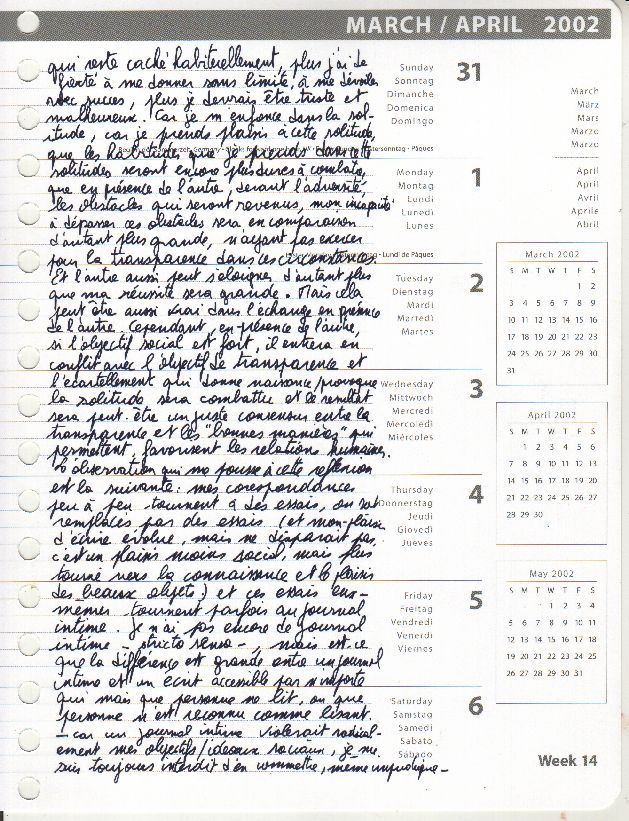 MARCH / APRIL 2002
qui reste caché habituellement, plus j'ai de
fierté à me donner sans limite, à me dévoiler
avec succès, plus je devrais être triste et
malheureux. Car je m'enfonce dans la sol-
itude, car je prends plaisir à cette solitude,
que les habitudes que je prends dans cette
solitudes seront encore plus dures à combattre,
que en présence de l'autre, devant l'adversité,
les obstacles qui seront revenus, mon incapacité
à dépasser ces obstacles sera en comparaison
d'autant plus grande, n'ayant pas exercer
pour la transparence dans ces circonstances.
Et l'autre aussi peut s'éloigner d'autant plus
que ma réussite sera grande. Mais cela
peut être aussi vrai dans l'échange en présence
de l'autre. Cependant, en présence de l'autre,
si l'objectif social est fort, il entrera en
conflit avec l'objectif de transparence et
l'écartellement qui donne naissance/provoque
la solitude sera combattue et le résultat
sera peut-être un juste consensus entre la
transparente et les "bonnes manières" qui
permettent, favorisent les relations humaines.
L'observation qui me pousse à cette réflexion
est la suivante: mes correspondances
peu à peu tournent à des essais, ou sont
remplacés par des essais (et mon plaisir
d'écrire évolue, mais ne disparaît pas,
c'est un plaisir moins social, mais plus
tourné vers la connaissance et le plaisir
des beaux objets) et ces essais eux-
mêmes tournent parfois au journal
intime. Je n'ai pas encore de journal
intime - stricto senso -, mais est-ce
que la différence est grande entre un journal
intime et un écrit accessible par n'importe
qui mais que personne ne lit, ou que
personne n'est reconnu comme lisant.
- car un journal intime violerait radical-
ement mes objectifs/idéaux sociaux, je me
suis toujours interdit d'en commettre, même impudique-
Sunday 31
Sonntag
Dimanche
Domenica
Domingo
Monday 1
Montag
Lundi
Lunedì
Lunes
Lundi de Pâques
Tuesday 2
Dienstag
Mardi
Martedì
Martes
Wednesday 3
Mittwoch
Mercredi
Mercoledì
Miércoles
Thursday 4
Donnerstag
Jeudi
Giovedì
Jueves
Friday 5
Freitag
Vendredi
Venerdì
Viernes
Saturday 6
Samstag
Samedi
Sabato
Sábado
March
März
Mars
Marzo
Marzo
April
April
Avril
Aprile
Abril
March 2002
S M T W T F S
1 2
3 4 5 6 7 8 9
10 11 12 13 14 15 16
17 18 19 20 21 22 23
24 25 26 27 28 29 30
31
April 2002
S M T W T F S
1 2 3 4 5 6
7 8 9 10 11 12 13
14 15 16 17 18 19 20
21 22 23 24 25 26 27
28 29 30
May 2002
S M T W T F S
1 2 3 4
5 6 7 8 9 10 11
12 13 14 15 16 17 18
19 20 21 22 23 24 25
26 27 28 29 30 31
Week 14